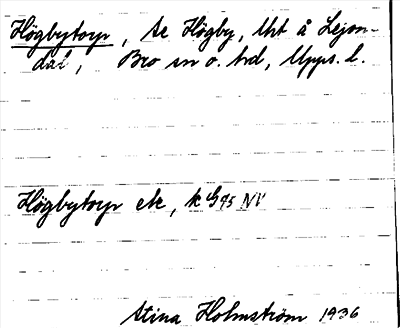 Högbytorp, se Högby, Uht å Lejon-
dal, Bro sn o. hd, Upps. l.
Högbytorp etc, k G 95 NV
Stina Holmström 1936